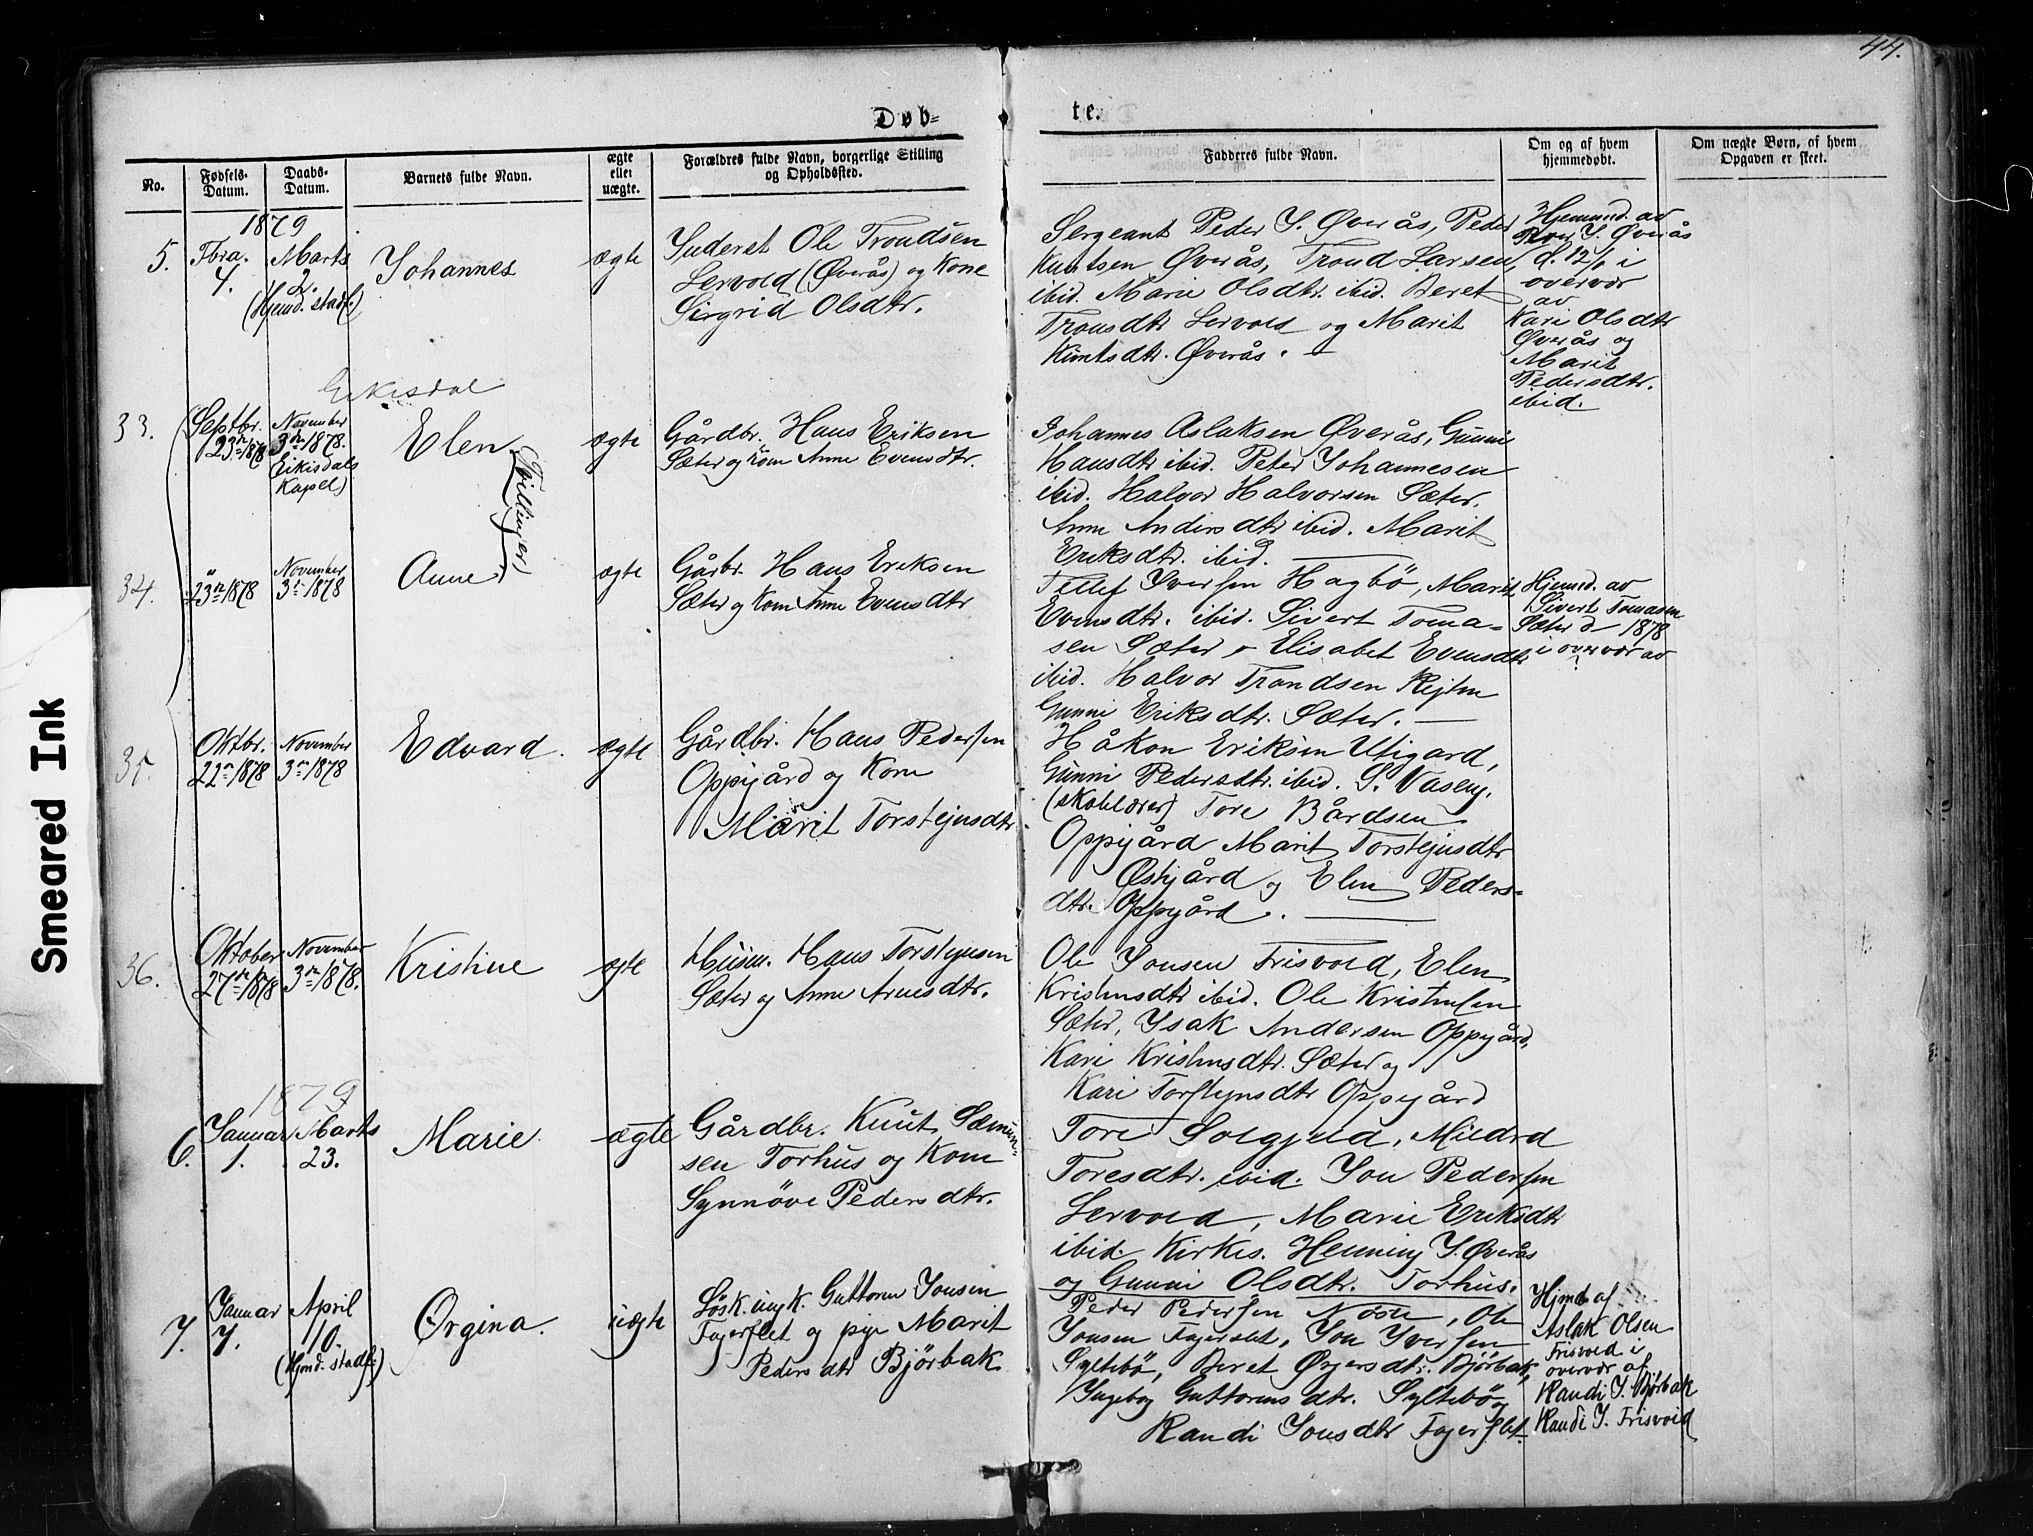 44.
Døb-
te.
No.
Fødsels-
Datum.
Daabs-
Datum.
Barnets fulde Navn.
ægte
eller
uægte.
Forældres fulde Navn, borgerlige Stilling
og Opholdssted.
Fadderes fulde Navn.
Om og af hvem
hjemmedøbt.
Om uægte Børn, af hvem
Opgaven er skeet.
1879
5.
Fbra.
4.
Marts
2.
(Hjemd. stadf.)
Johannes
ægte
Inderst Ole Trondsen
Lervold (Øverås) og Kone
Sigrid Olsdtr.
Sergeant Peder J. Øverås, Peder
Knutsen Øverås, Trond Larsen
ibid. Marie Olsdtr. ibid. Beret
Tronsdtr Lervold og Marit
Knutsdtr. Øverås.
Hjemmd. av
Peder J. Øverås
d. 12/2 i
overvær
av
Kari Olsdtr
Øverås og
Marit
Pedersdtr.
ibid.
Eikisdal
33.
Septbr.
23de 1878
November
3de 1878.
Eikisdals
Kapel)
Elen
(Tvillinger)
ægte
Gårdbr. Hans Eriksen
Sæter og Kone Anne Evensdtr.
Johannes Aslaksen Øverås, Gunni
Hansdtr ibid. Peter Johannesen
ibid. Halvor Halvorsen Sæter.
Anne Andersdtr ibid. Marit
Eriksdtr. ibid.
34.
23de 1878
November
3de 1878
Anne
ægte
Gårbr. Hans Eriksen
Sæter og Kone Anne Evensdtr
Tellef Iversen Hagbö, Marit
Evensdtr. ibid. Sivert Toma-
sen Sæter Elisabet Evensdtr
ibid. Halvor Trondsen
Gunni Eriksdtr. Sæter.
Hjemd. av
Sivert Tomasen
Sæter d 1878
i overvær av
?
35.
Oktbr.
22de 1878
November
3de 1878
Edvard.
ægte
Gårdbr. Hans Pedersen
Oppigård og Kone
Marit Torstejnsdtr
Håkon Eriksen Utigard,
Gunni Pedersdtr. ibid. S. Vaseng.
(skolelærer) Tore Bårdsen
Oppigård Marit Torstejnsdtr
Østigård og Elen Peders-
dtr. Oppigård.
36.
Oktober
27de 1878
November
3de 1878.
Kristine
ægte
Husm. Hans Torstejnsen
Sæter og Anne Arnesdtr.
Ole Jonsen Frisvold, Elen
Kristensdtr ibid. Ole Kristensen
Sæter, Isak Andersen Oppigård,
Kari Kristensdtr. Sæter og
Kari Torstejnsdtr Oppigård
1879
6.
Januar
1.
Marts
23.
Marie
ægte
Gårdbr. Knut Sæmun-
sen Torhus og Kone
Synnöve Pedersdtr.
Tore Solgjeld, Mildrd
Toresdtr. ibid. Jon Pedersen
Lervold, Marie Eriksdtr
ibid. Kirkes. Henning J. Øverås
og Gunni Olsdtr. Torhus.
7.
Januar
7.
April
110.
(Hjmd. stadf.)
Ørgina.
uægte
Løsk. ungk. Guttorm Jonsen
Fagerslet og pge Marit
Pedersdtr Bjørbak
Peder Pedersen Noste, Ole
Jonsen Fagerslet, Jon Iversen
Syltebö, Beret Ørjersdtr. Bjørbak,
Ingebog Guttormsdtr. Syltebö og
Randi Jonsdtr Fagerslet.
Hjmd af
Aslak Olsen
Frisvold i
overvær af
Randi J. Bjørbak
Randi J. Frisvold
Smeared Ink